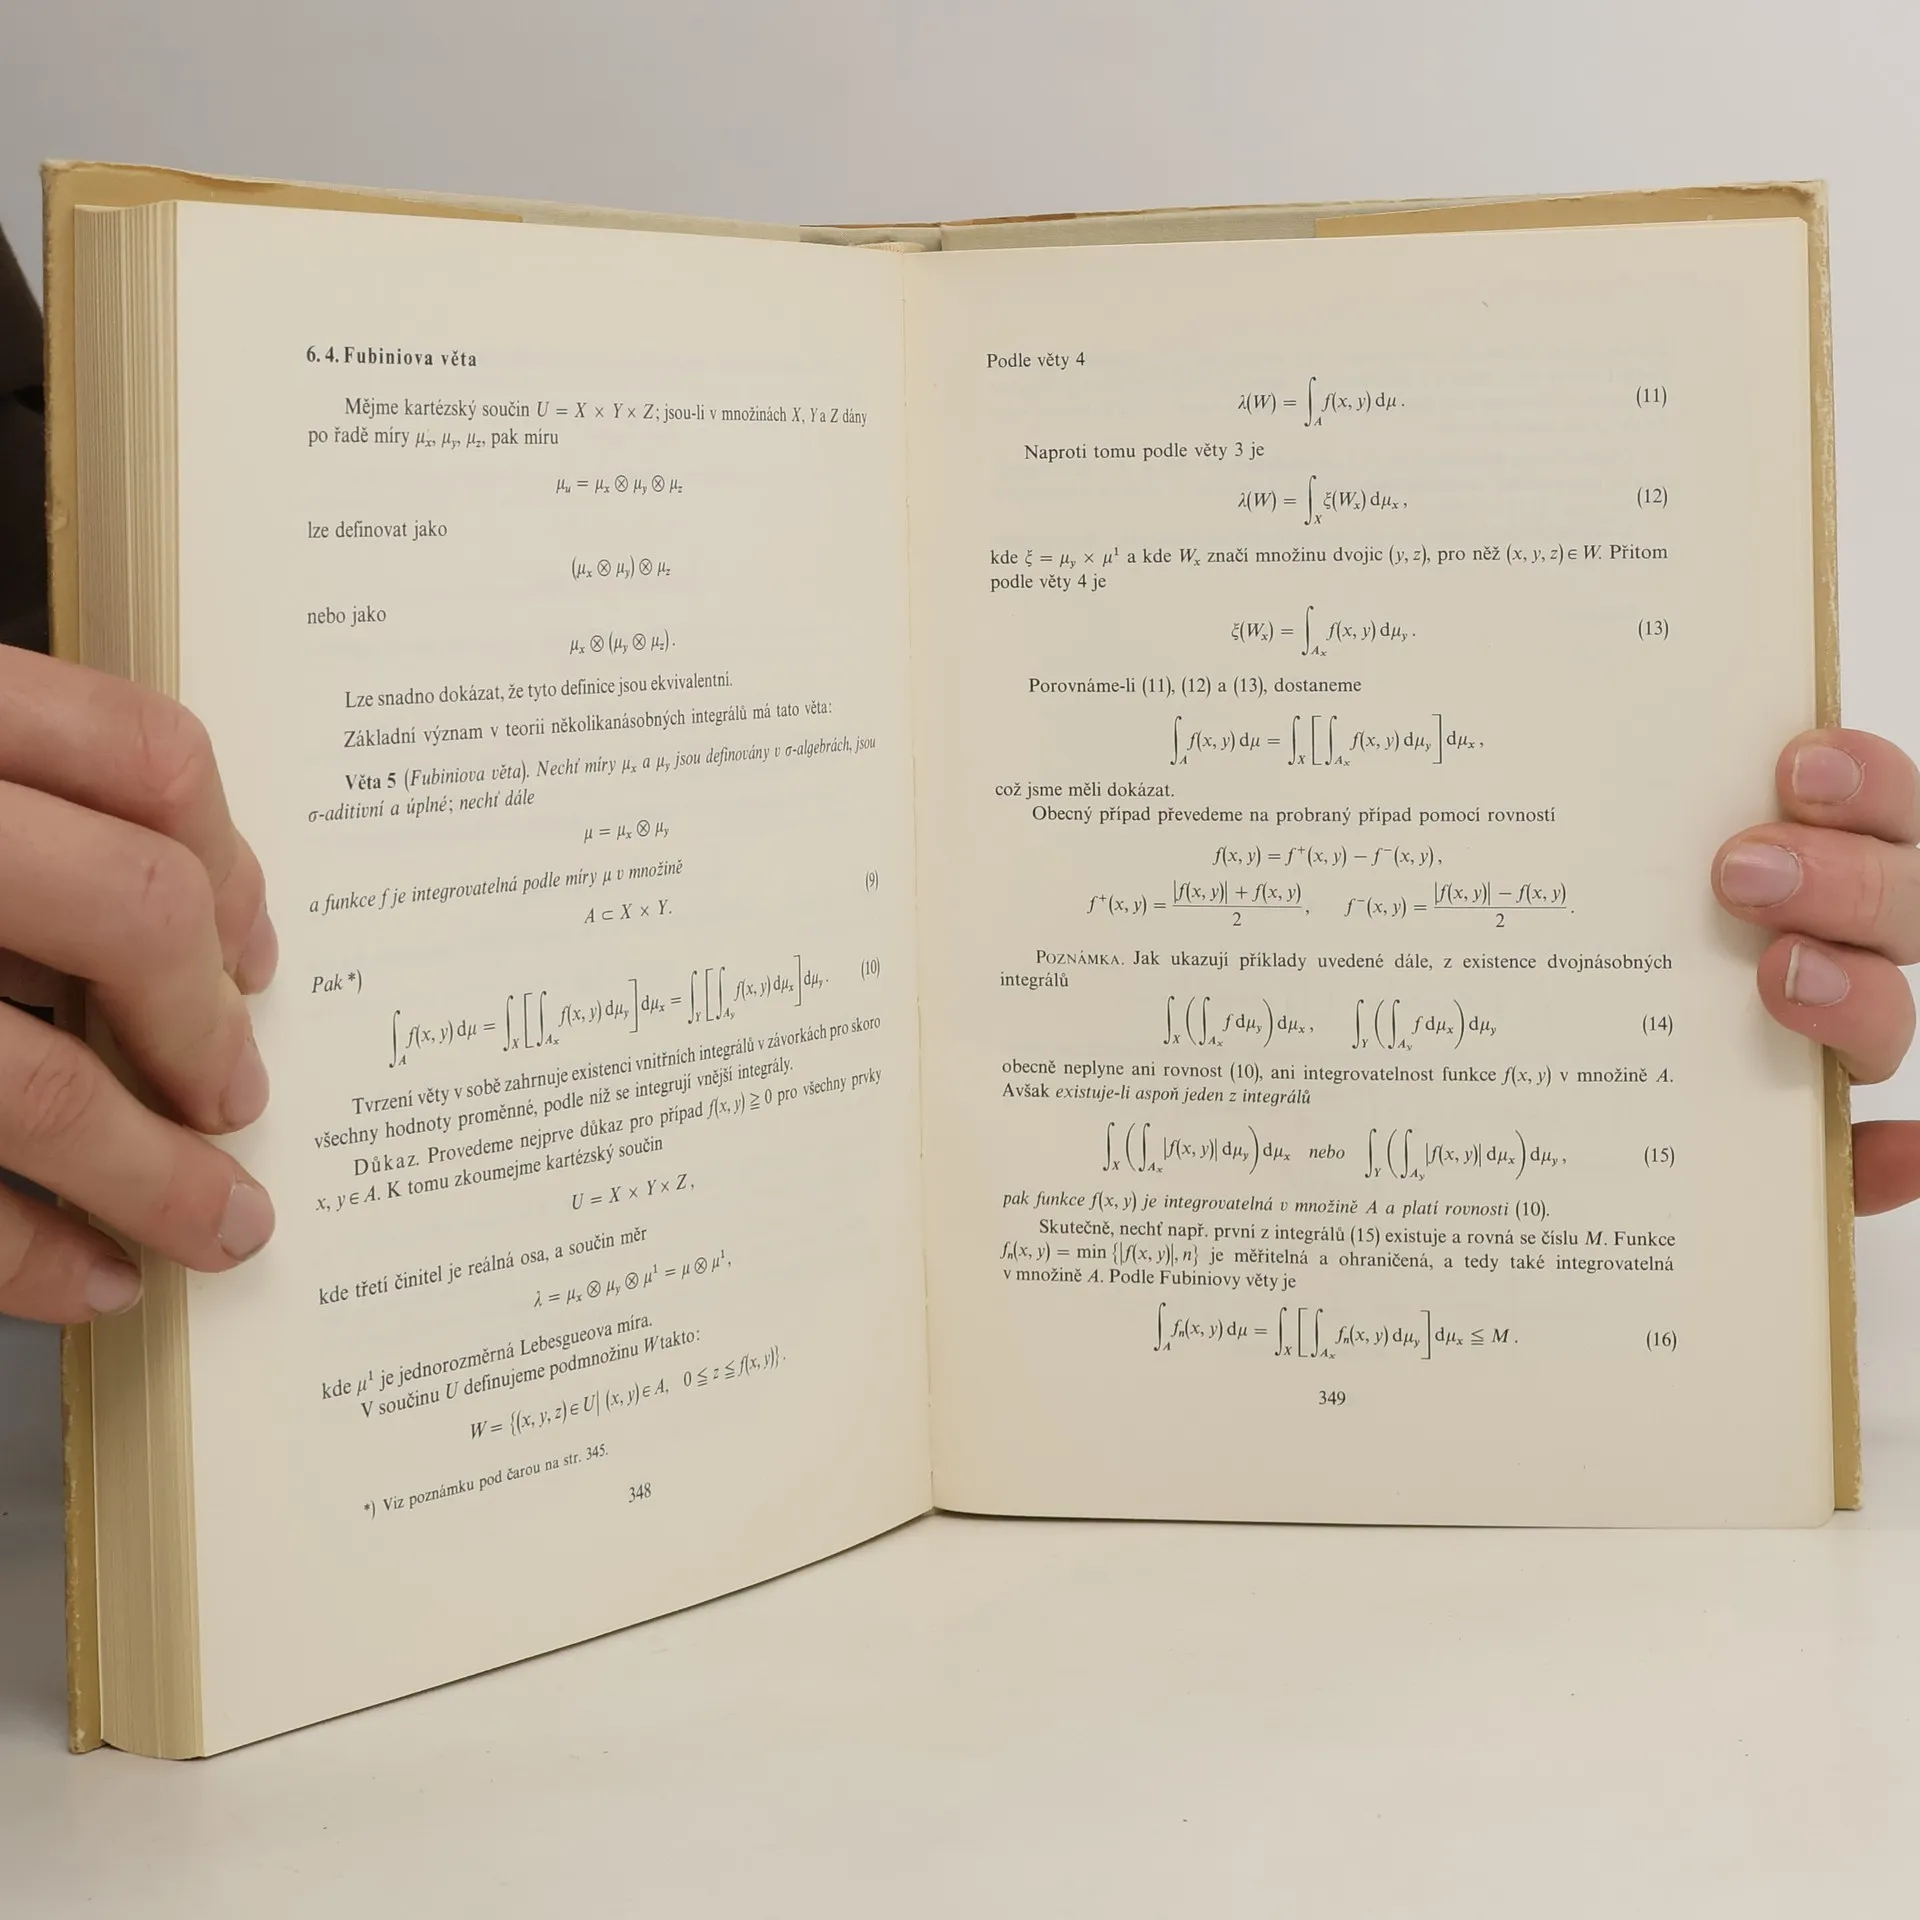 6.4. Fubiniova věta
Mějme kartézský součin U = X × Y × Z; jsou-li v množinách X, Y a Z dány
po řadě míry μₓ, μᵧ, μ_z, pak míru
μᵤ = μₓ ⊗ μᵧ ⊗ μ_z
lze definovat jako
(μₓ ⊗ μᵧ) ⊗ μ_z
nebo jako
μₓ ⊗ (μᵧ ⊗ μ_z).
Lze snadno dokázat, že tyto definice jsou ekvivalentní.
Základní význam v teorii několikanásobných integrálů má tato věta:
Věta 5 (Fubiniova věta). Nechť míry μₓ a μᵧ jsou definovány v σ-algebrách, jsou
σ-aditivní a úplné; nechť dále
μ = μₓ ⊗ μᵧ
a funkce f je integrovatelná podle míry μ v množině
A ⊂ X × Y. (9)
Pak *)
∫_A f(x, y) dμ = ∫_X [∫_{Aₓ} f(x, y) dμᵧ] dμₓ = ∫_Y [∫_{Aᵧ} f(x, y) dμₓ] dμᵧ. (10)
Tvrzení věty v sobě zahrnuje existenci vnitřních integrálů v závorkách pro skoro
všechny hodnoty proměnné, podle níž se integrují vnější integrály.
Důkaz. Provedeme nejprve důkaz pro případ f(x, y) ≧ 0 pro všechny prvky
x, y ∈ A. K tomu zkoumejme kartézský součin
U = X × Y × Z,
kde třetí činitel je reálná osa, a součin měr
λ = μₓ ⊗ μᵧ ⊗ μ¹ = μ ⊗ μ¹,
kde μ¹ je jednorozměrná Lebesgueova míra.
V součinu U definujeme podmnožinu W takto:
W = {(x, y, z) ∈ U| (x, y) ∈ A, 0 ≦ z ≦ f(x, y)}.
*) Viz poznámku pod čarou na str. 345.
348
Podle věty 4
λ(W) = ∫_A f(x, y) dμ. (11)
Naproti tomu podle věty 3 je
λ(W) = ∫_X ξ(Wₓ) dμₓ, (12)
kde ξ = μᵧ × μ¹ a kde Wₓ značí množinu dvojic (y, z), pro něž (x, y, z) ∈ W. Přitom
podle věty 4 je
ξ(Wₓ) = ∫_{Aₓ} f(x, y) dμᵧ. (13)
Porovnáme-li (11), (12) a (13), dostaneme
∫_A f(x, y) dμ = ∫_X [∫_{Aₓ} f(x, y) dμᵧ] dμₓ,
což jsme měli dokázat.
Obecný případ převedeme na probraný případ pomocí rovností
f(x, y) = f⁺(x, y) − f⁻(x, y),
f⁺(x, y) = (|f(x, y)| + f(x, y))/2, f⁻(x, y) = (|f(x, y)| − f(x, y))/2.
POZNÁMKA. Jak ukazují příklady uvedené dále, z existence dvojnásobných
integrálů
∫_X (∫_{Aₓ} f dμᵧ) dμₓ, ∫_Y (∫_{Aᵧ} f dμₓ) dμᵧ (14)
obecně neplyne ani rovnost (10), ani integrovatelnost funkce f(x, y) v množině A.
Avšak existuje-li aspoň jeden z integrálů
∫_X (∫_{Aₓ} |f(x, y)| dμᵧ) dμₓ nebo ∫_Y (∫_{Aᵧ} |f(x, y)| dμₓ) dμᵧ, (15)
pak funkce f(x, y) je integrovatelná v množině A a platí rovnosti (10).
Skutečně, nechť např. první z integrálů (15) existuje a rovná se číslu M. Funkce
fₙ(x, y) = min {|f(x, y)|, n} je měřitelná a ohraničená, a tedy také integrovatelná
v množině A. Podle Fubiniovy věty je
∫_A fₙ(x, y) dμ = ∫_X [∫_{Aₓ} fₙ(x, y) dμᵧ] dμₓ ≦ M. (16)
349